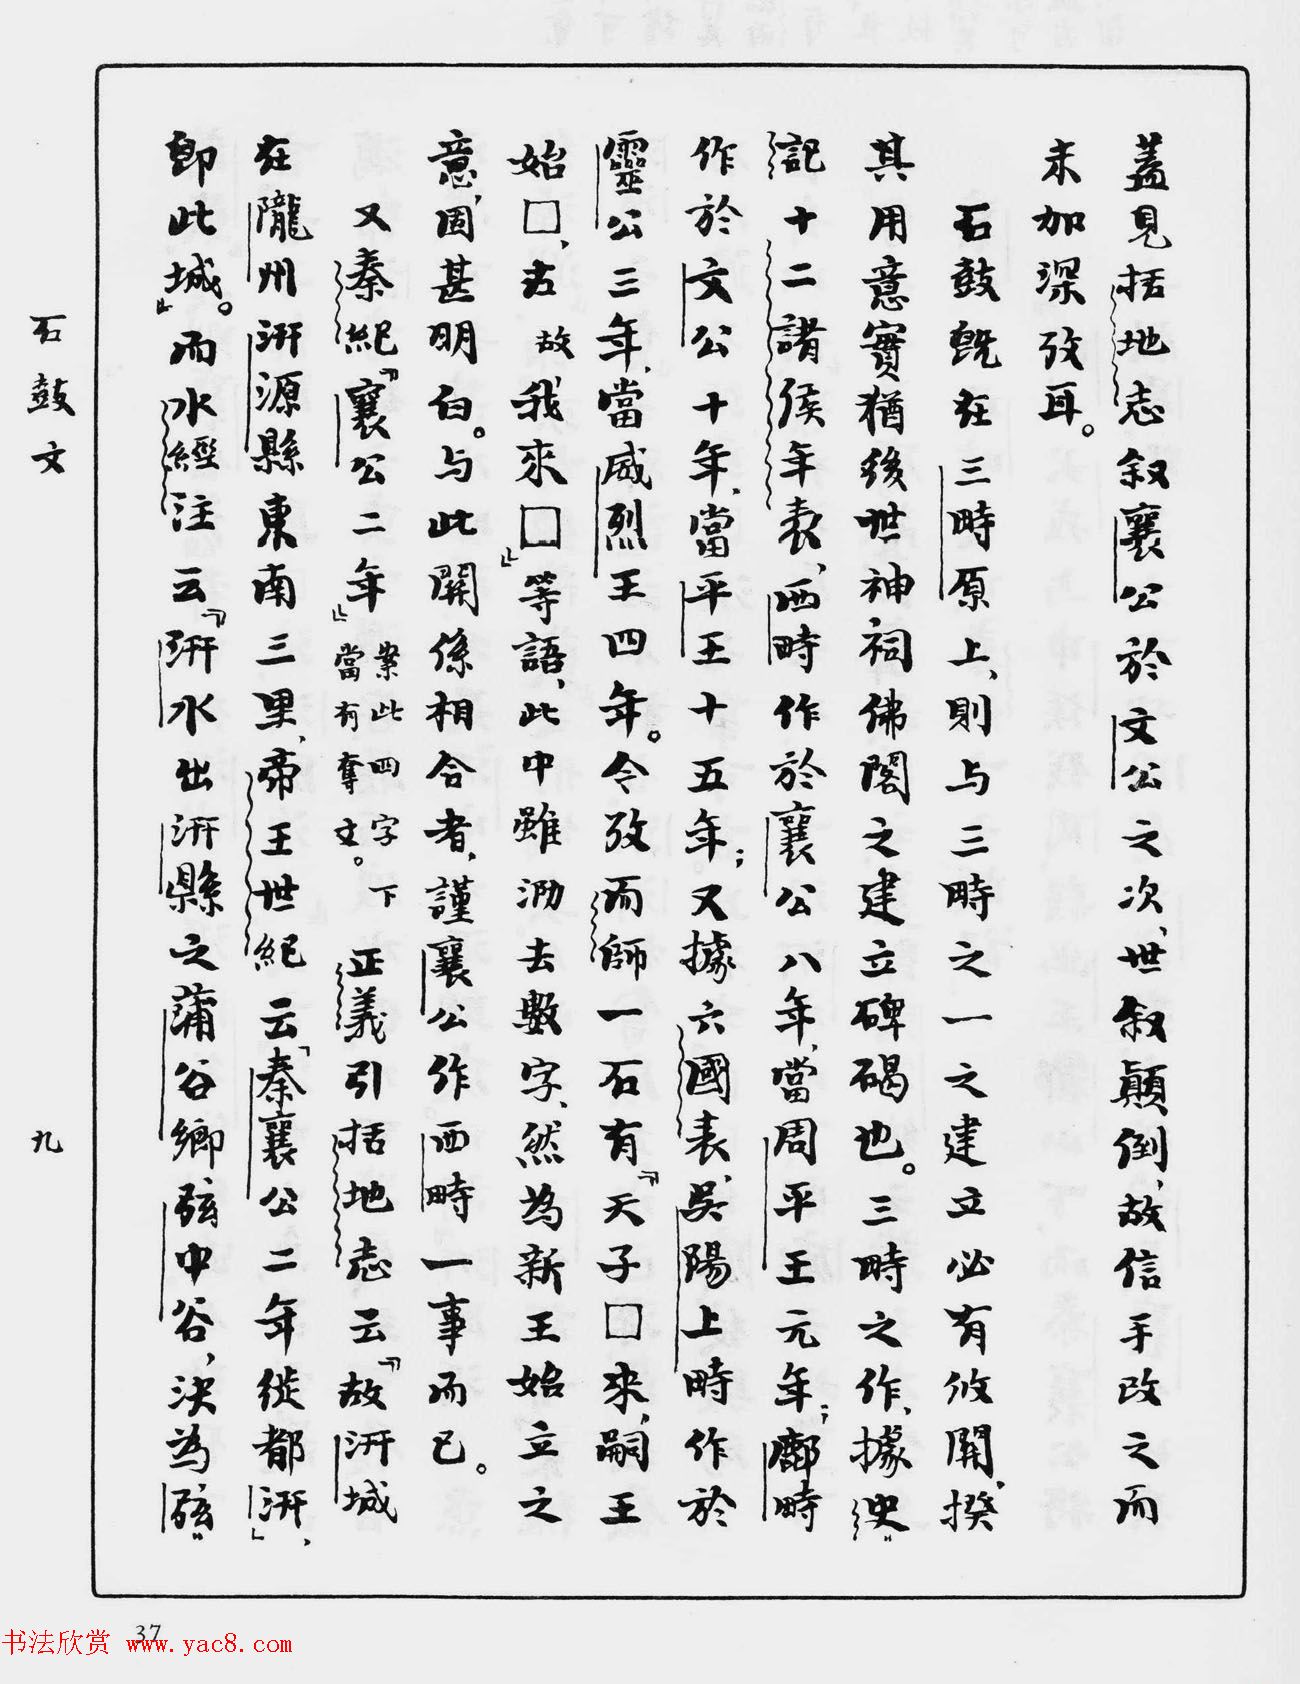 蓋見括地志叙襄公於文公之次，世叙顛倒，故信手改之而
未加深攷耳。
石鼓旣在三畤原上，則与三畤之一之建立必有攸関，揆
其用意實猶後世神祠佛閣之建立碑碣也。三畤之作，據史
記十二諸侯年表，西畤作於襄公八年，當周平王元年；鄜畤
作於文公十年，當平王十五年；又據六國表，吳陽上畤作於
靈公三年，當威烈王四年。今攷而師一石有「天子□來，嗣王
始□，古故我來□」等語，此中雖泐去數字，然為新王始立之
意，固甚明白。与此関係相合者，謹襄公作西畤一事而已。
又秦紀「襄公二年」案此四字下當有奪文。正義引括地志云「故汧城
在隴州汧源縣東南三里，帝王世紀云「秦襄公二年徙都汧」，
即此城」。而水經注云「汧水出汧縣之蒲谷鄉弦中谷，決為弦
石鼓文
九
37
书法欣赏 www.yac8.com